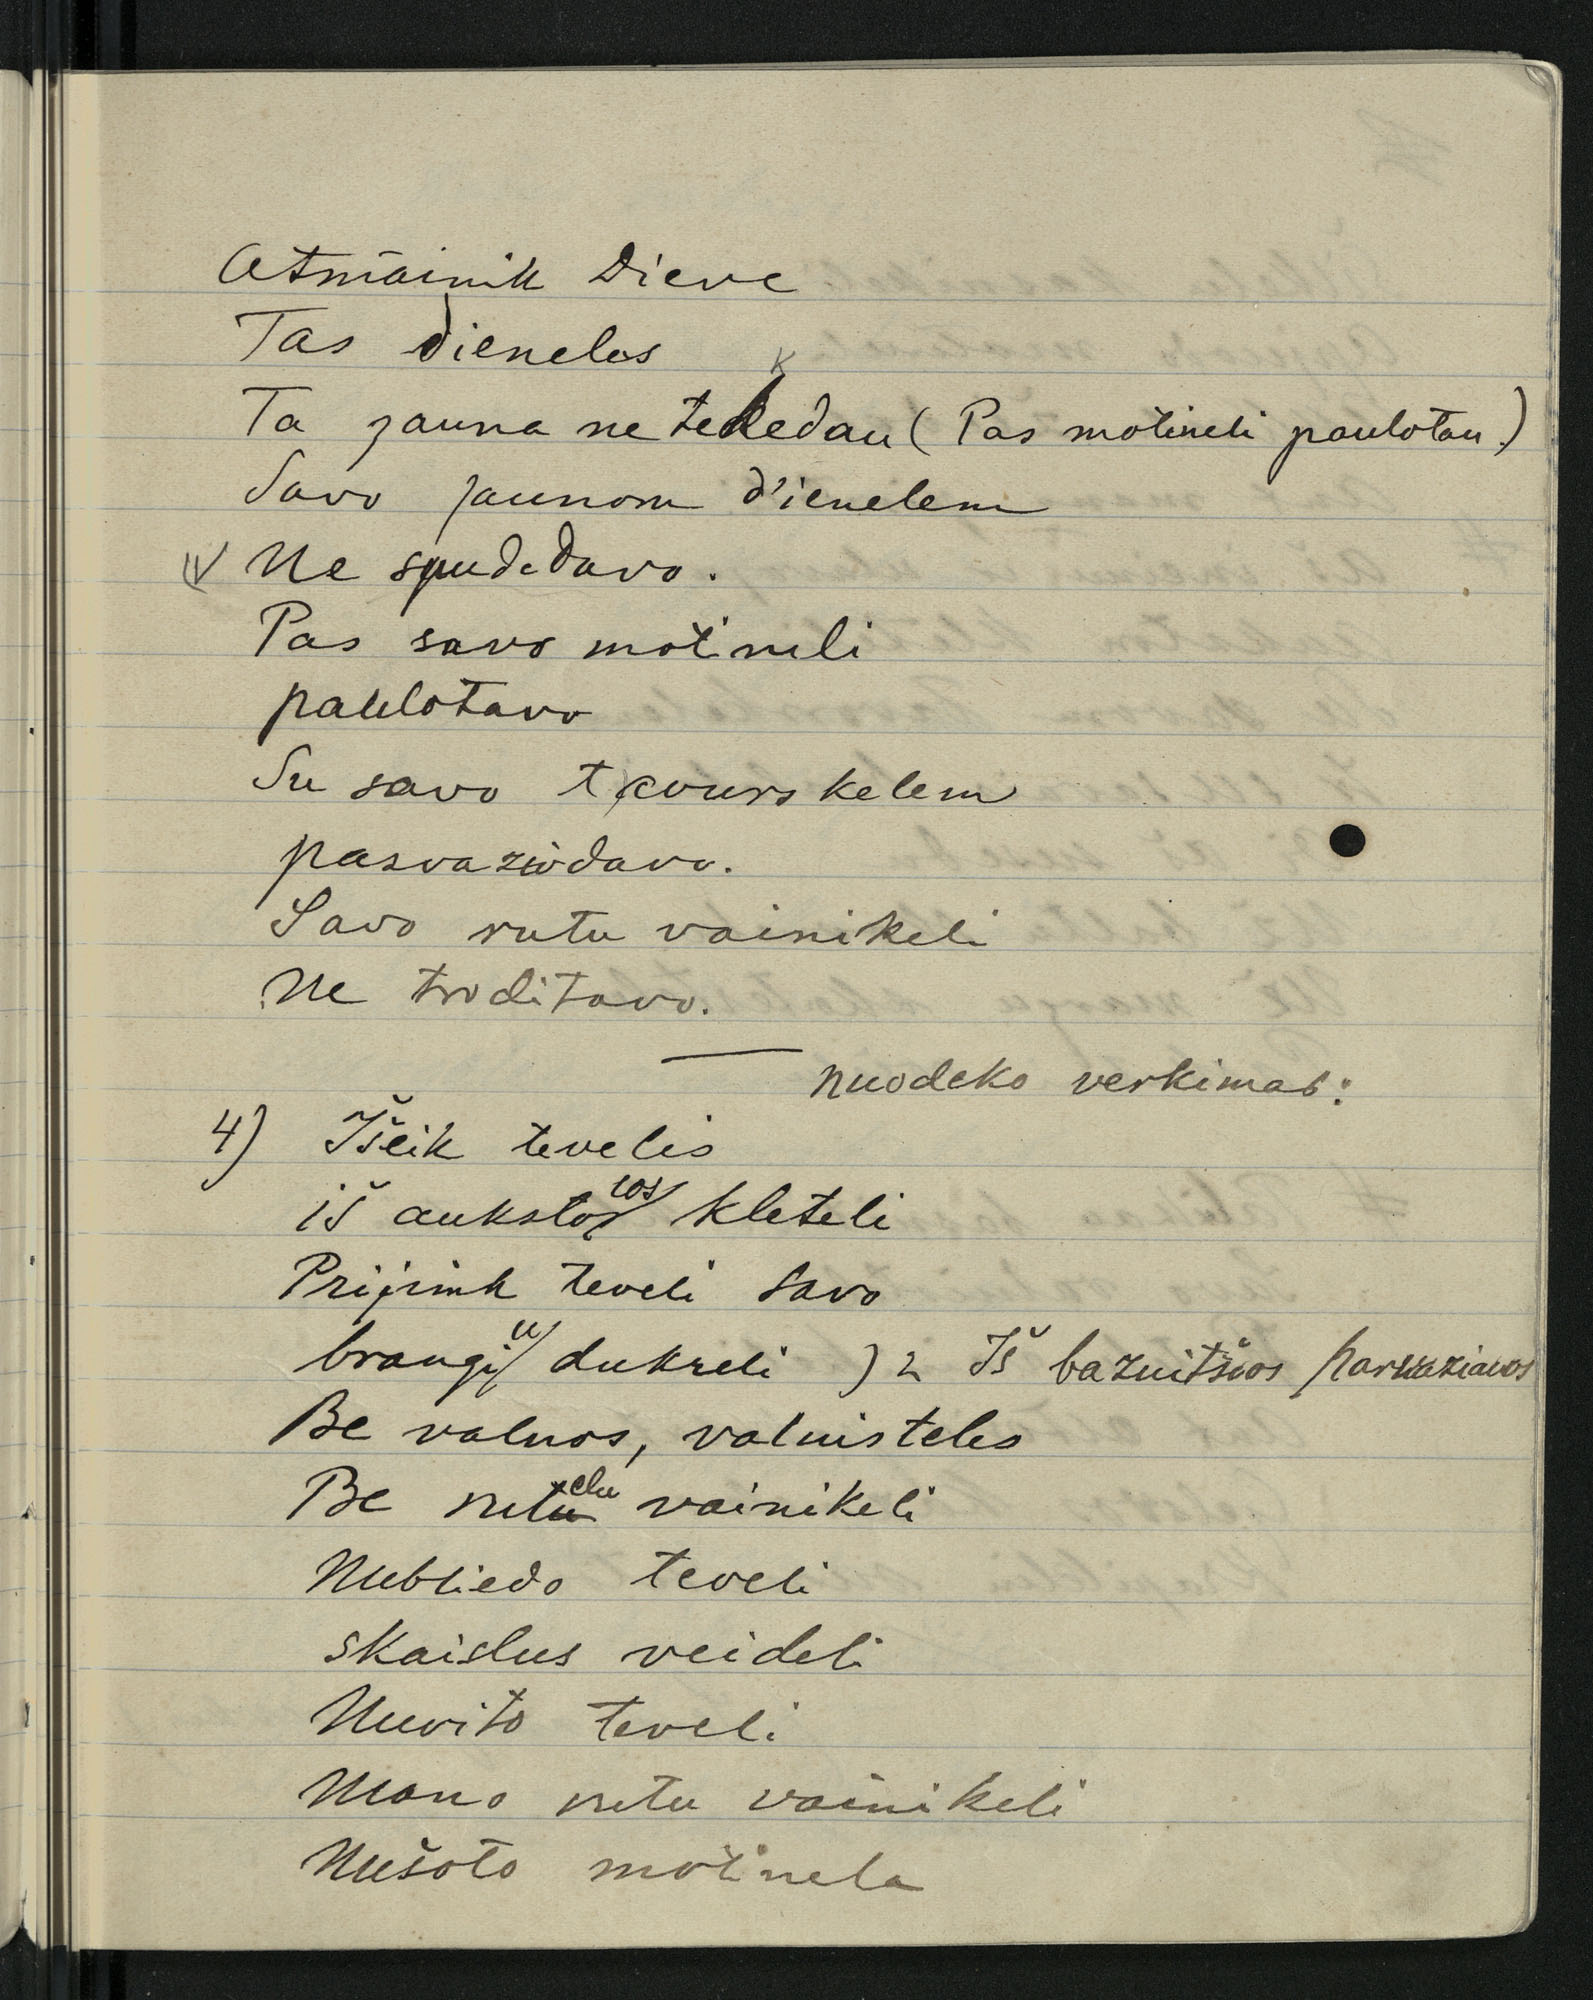 Atmainik Dieve
Tas dienelas
Ta jauna ne tekedau (Pas motineli paulotau.)
Savo jaunom d'ienelem
Ne spudedavo.
Pas savo motineli
paulotavo
Su savo tavurskelem
pasvaziodavo.
Savo rutu vainikeli
Ne troditavo.
nuodeko verkimas:
4) Išeik tevelis
iš aukstos kleteli
Prijimk teveli savo
brangiu dukreli )2 Iš bazuitšios parvaziavos
Be valnos, valnisteles
Be rutelu vainikeli
Nubliedo teveli
skaislus veideli
Nuvito teveli
Mano rutu vainikeli
Nušoto motinela